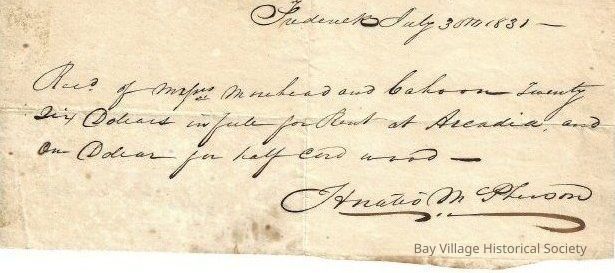 Frederick July 30th 1831 —
Recd of Messrs Morehead and Cahoon Twenty
Six Dolears in full for Rent at Arcadia, and
on Dolear for half Cord wood —
Horatio McPherson
Bay Village Historical Society